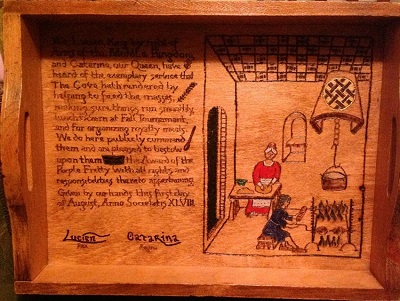 and Caterina, our Queen, have
heard of the exemplary service that
The Cova hath rendered by
helping to feed the masses,
making sure things run smoothly
lunch tavern at Fall Tournament,
and for organizing royalty meals.
We do here publicly commend
them and are pleased to bestow
upon them the Award of the
Purple Fretty with all rights and
responsibilities thereto appertaining.
Given by our hands this first day
of August, Anno Societatis XLVIII
Lucien Catarina
Rex Regina